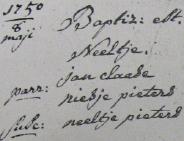 1750
8
maji
Baptiz: est.
Neeltje.
jan claese
parr: niesje pieters
susc: neeltje pieters